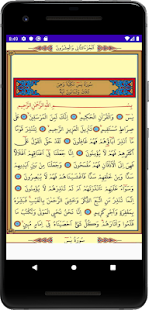 8:49
الجزء الثاني والعشرون
سورة يس مكية وهي
ثلاث وثمانون آية
بِسْمِ اللَّهِ الرَّحْمَٰنِ الرَّحِيمِ
يسٓ وَالْقُرْآنِ الْحَكِيمِ إِنَّكَ لَمِنَ الْمُرْسَلِينَ عَلَى
صِرَاطٍ مُسْتَقِيمٍ تَنْزِيلَ الْعَزِيزِ الرَّحِيمِ لِتُنْذِرَ قَوْمًا مَا
أُنْذِرَ آبَاؤُهُمْ فَهُمْ غَافِلُونَ لَقَدْ حَقَّ الْقَوْلُ عَلَى
أَكْثَرِهِمْ فَهُمْ لَا يُؤْمِنُونَ إِنَّا جَعَلْنَا فِي أَعْنَاقِهِمْ أَغْلَالًا
فَهِيَ إِلَى الْأَذْقَانِ فَهُمْ مُقْمَحُونَ وَجَعَلْنَا مِنْ بَيْنِ أَيْدِيهِمْ
سَدًّا وَمِنْ خَلْفِهِمْ سَدًّا فَأَغْشَيْنَاهُمْ فَهُمْ لَا يُبْصِرُونَ
وَسَوَاءٌ عَلَيْهِمْ أَأَنْذَرْتَهُمْ أَمْ لَمْ تُنْذِرْهُمْ لَا يُؤْمِنُونَ إِنَّمَا
تُنْذِرُ مَنِ اتَّبَعَ الذِّكْرَ وَخَشِيَ الرَّحْمَٰنَ بِالْغَيْبِ فَبَشِّرْهُ
بِمَغْفِرَةٍ وَأَجْرٍ كَرِيمٍ إِنَّا نَحْنُ نُحْيِي الْمَوْتَى وَنَكْتُبُ مَا
قَدَّمُوا وَآثَارَهُمْ وَكُلَّ شَيْءٍ أَحْصَيْنَاهُ فِي إِمَامٍ مُبِينٍ
سورة يس